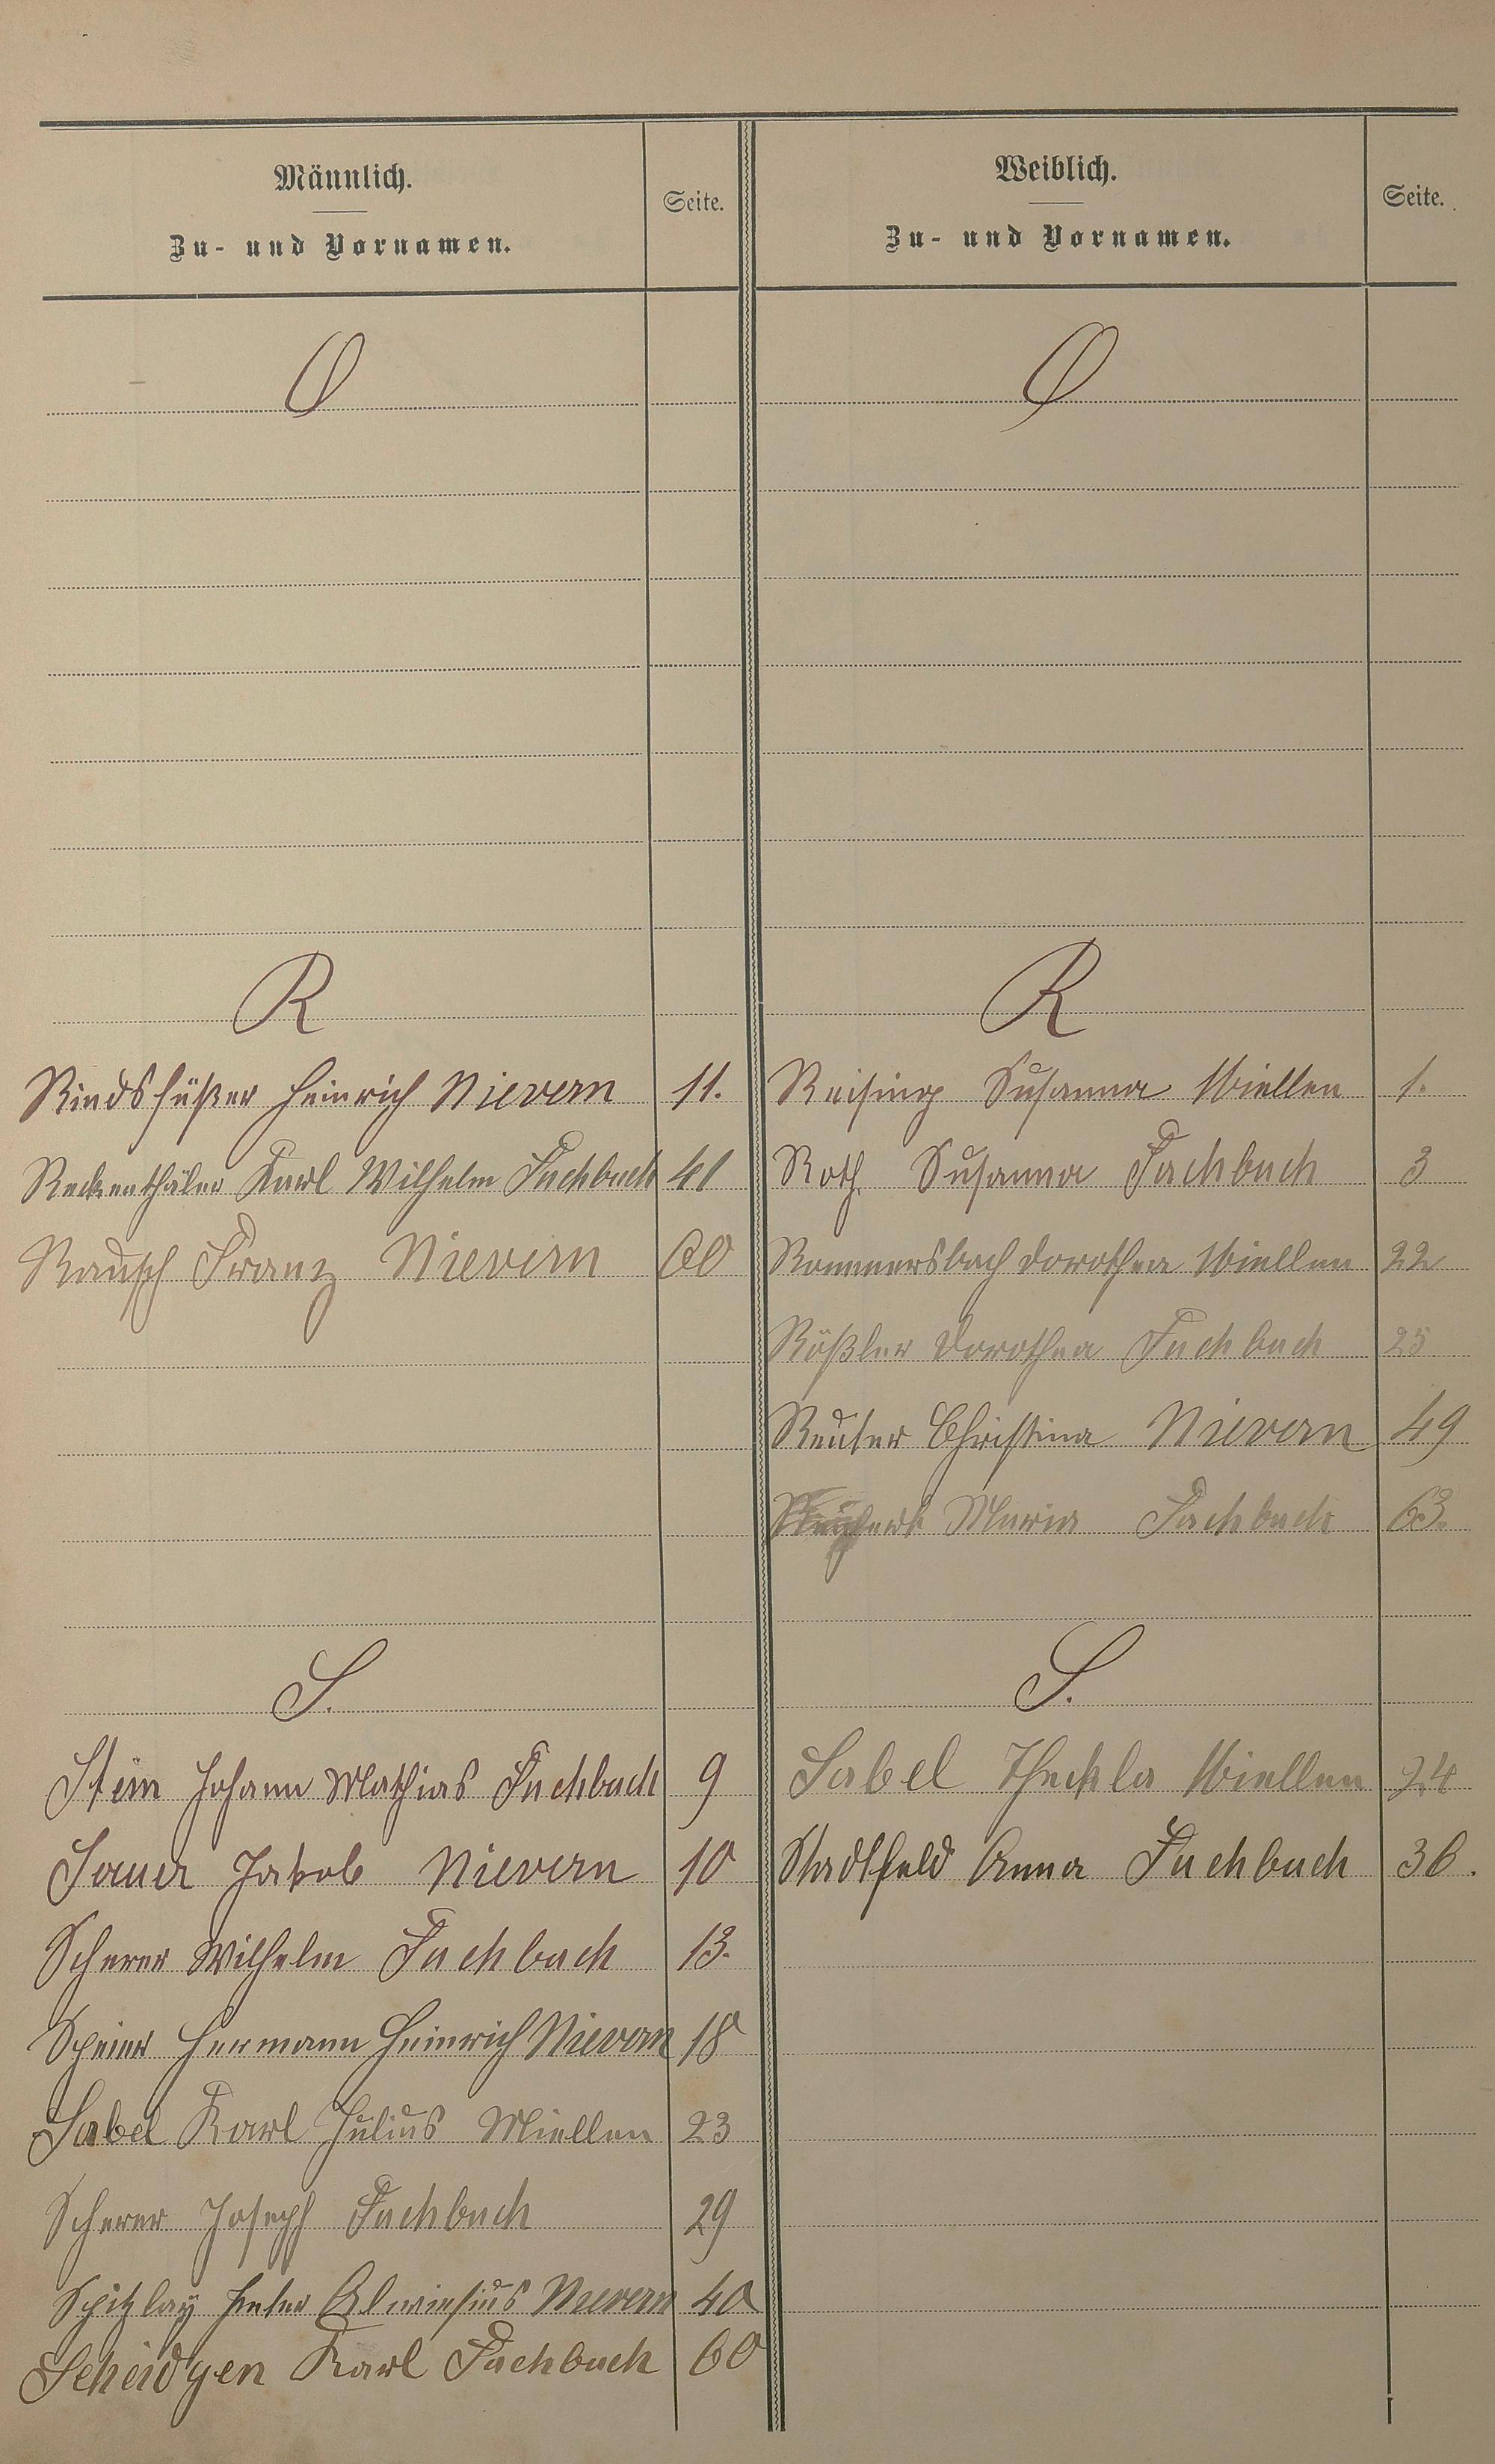 Männlich.
Zu- und Vornamen.
Seite.
O
R
Rindsfüßer Heinrich Nievern 11.
Reckenthäler Karl Wilhelm Fachbach 41
Rausch Franz Nievern 60
S.
Stein Johann Mathias Fachbach 9
Sauer Jakob Nievern 10
Scherer Wilhelm Fachbach 13.
Speier Hermann Heinrich Nievern 18
Sabel Karl Julius Miellen 23
Scherer Joseph Fachbach 29
Spitzlay Peter Nievern 40
Scheidgen Karl Fachbach 60
Weiblich.
Zu- und Vornamen.
Seite.
O
R
Reising Susanna Miellen 1.
Roth Susanna Fachbach 3
Rommersbach Dorothea Miellen 22
Rößler Dorothea Fachbach 25
Reuter Christina Nievern 49
Maria Fachbach 63.
S.
Sabel Theckla Miellen 24
Stadtfeld Anna Fachbach 36.